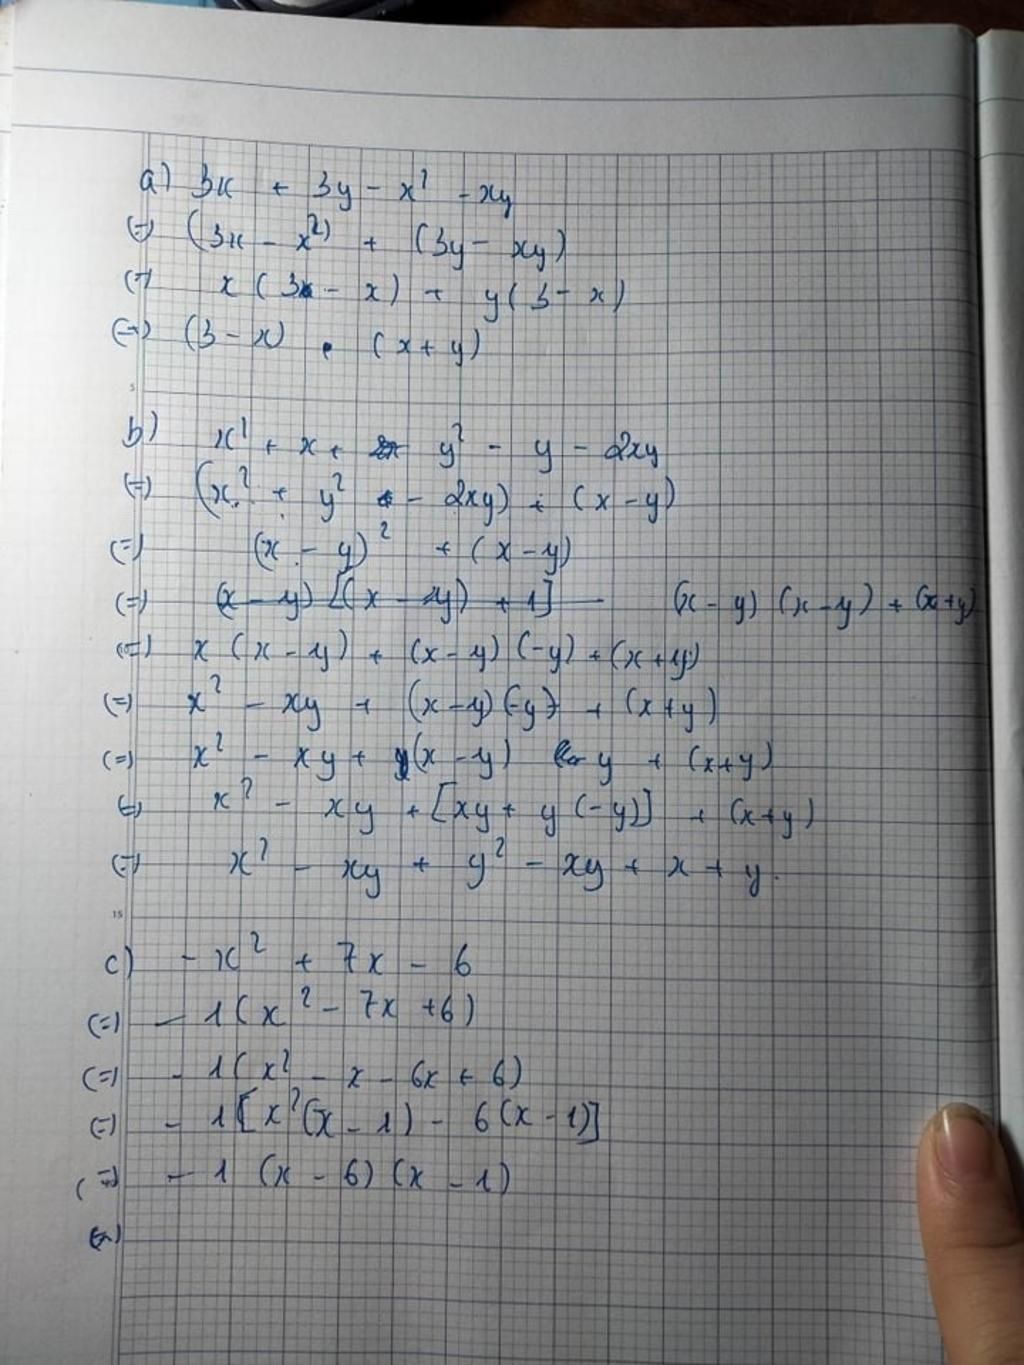 a) 3x + 3y - x² - xy
(=) (3x - x²) + (3y - xy)
(=) x (3 - x) + y (3 - x)
(=) (3 - x) . (x + y)
5
b) x² + x + y² - y - 2xy
(=) (x² + y² - 2xy) + (x - y)
(=) (x - y)² + (x - y)
(=) (x - y) [(x - y) + 1] (x - y) (x - y) + (x + y)
(=) x (x - y) + (x - y) (-y) + (x + y)
(=) x² - xy + (x - y) (-y) + (x + y)
(=) x² - xy + y (x - y) y + (x + y)
(=) x² - xy + [xy + y (-y)] + (x + y)
(=) x² - xy + y² - xy + x + y.
15
c) - x² + 7x - 6
(=) - 1 (x² - 7x + 6)
(=) - 1 (x² - x - 6x + 6)
(=) - 1 [x² (x - 1) - 6 (x - 1)]
(=) - 1 (x - 6) (x - 1)
(=)